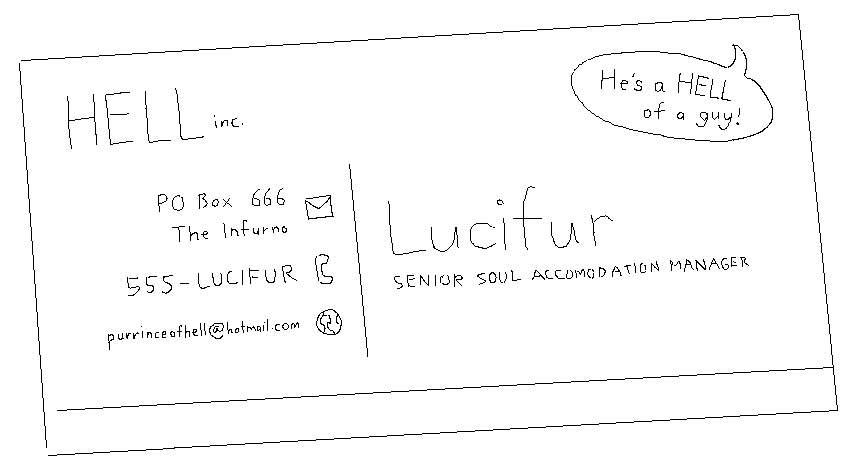 HELL inc.
He's a HELL
of a guy!
PO Box 666
The Infurno
555-LUCIFUR
purrinceofhell@hotmail.com
Lucifur
SENIOR SOUL ACCOMODATION MANAGER